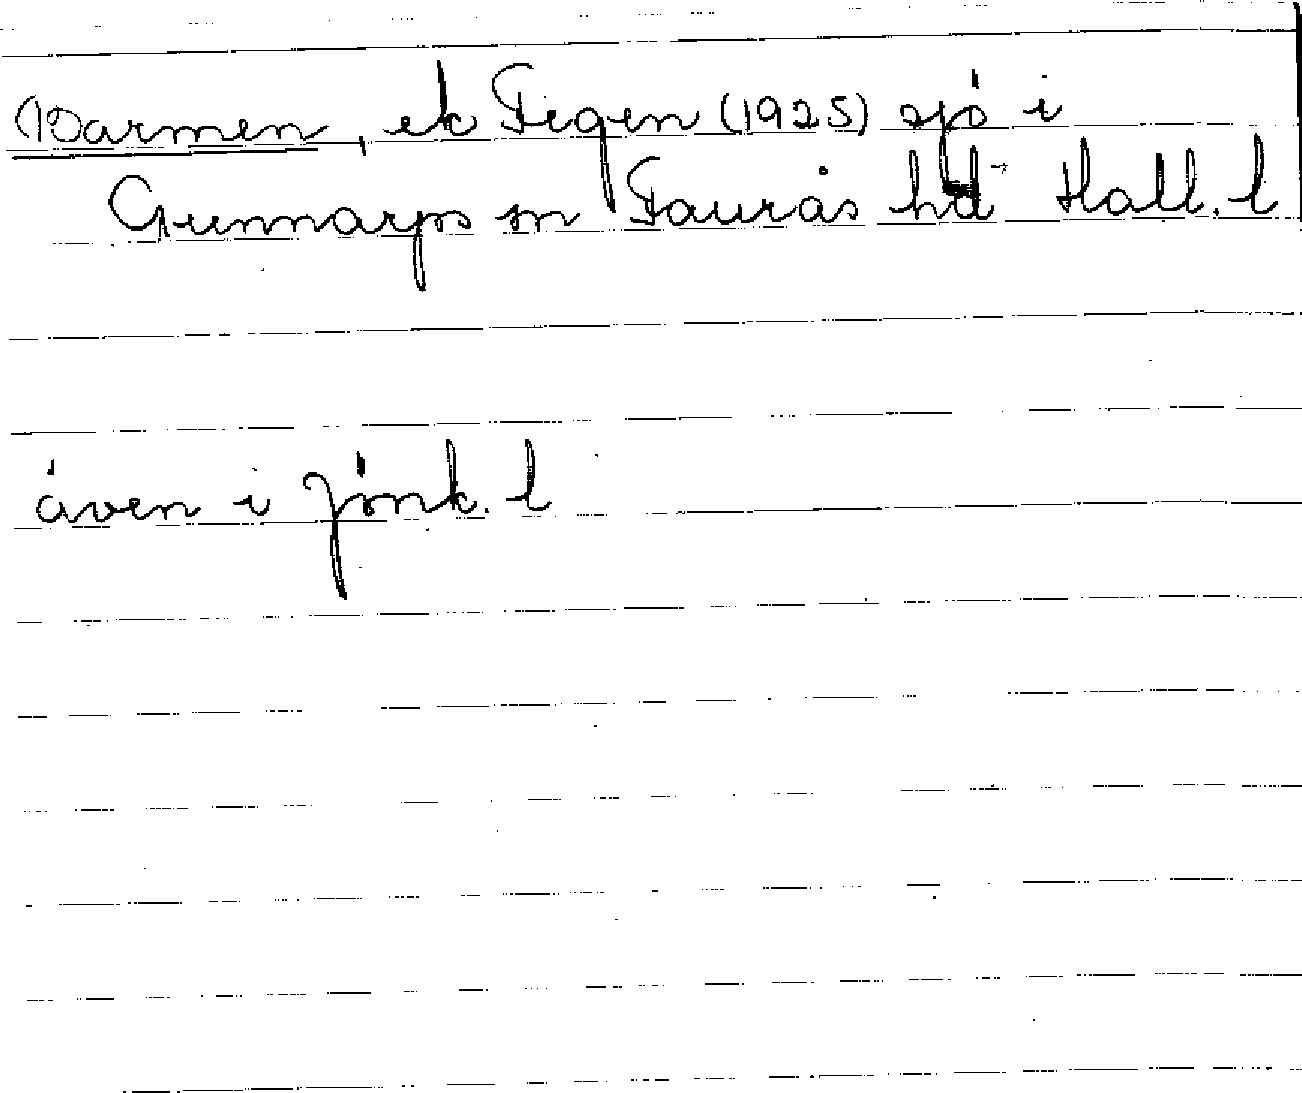 Barmen, ek Fegen (1925) sjö i
Gunnarps sn Faurås hd Hall. l
även i Jönk. l